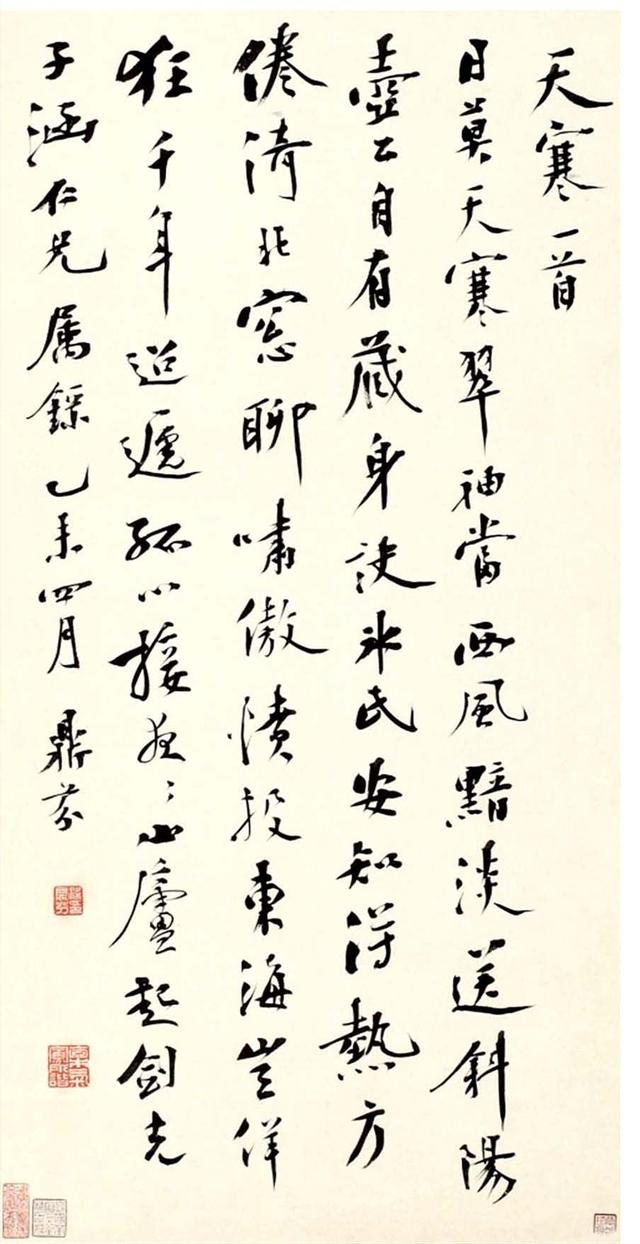 天寒一首
日莫天寒翠袖當西風黯淡送斜陽
壺公自有藏身訣氷氏安知得熱方
倦倚北窓聊嘯傲憤投東海豈佯
狂千年迢遞孤心接夜〻山廬起劍光
子涵仁兄属錄乙未四月鼎芬